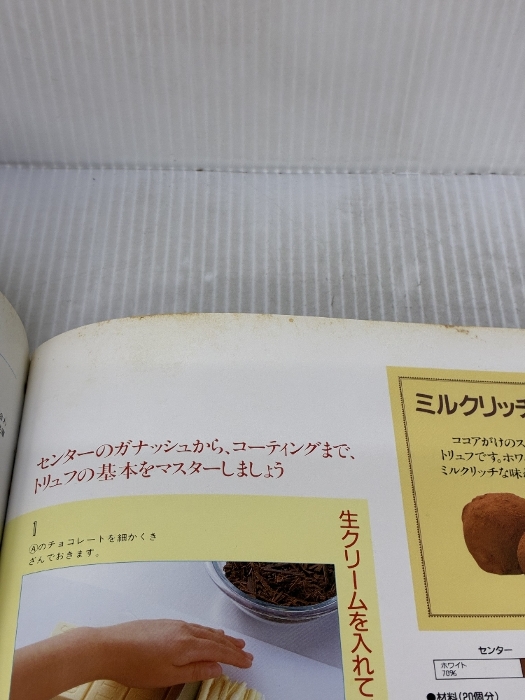 センターのガナッシュから、コーティングまで、
トリュフの基本をマスターしましょう
1
Ⓐのチョコレートを細かくき
ざんでおきます。
生クリームを入れて
ミルクリッチ
ココアがけのス
トリュフです。ホワ
ミルクリッチな味
センター
ホワイト
70%
●材料(20個分)